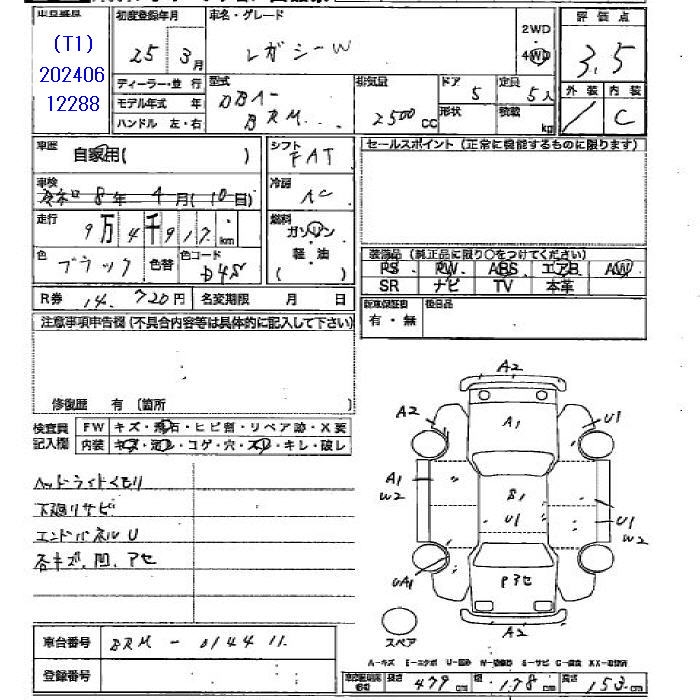 (T1)
202406
12288
初度登録年月
25年3月
車名・グレード
レガシーW
2WD
4WD
評価点
3.5
外装 内装
C
ディーラー・並行
モデル年式 年
ハンドル 左・右
型式
DBA-
BRM
排気量
2500cc
ドア
5
形状
定員
5人
積載
kg
車歴
自家用( )
シフト
FAT
セールスポイント (正常に機能するものに限ります)
車検
令和8年4月(10日)
冷房
AC
走行
9万4千917km
燃料
ガソリン
軽・油
( )
色
ブラック
色替
色コード
D4S
装備品 (純正品に限り○をつけてください)
PS PW ABS エアB AW
SR ナビ TV 本革
R券 14,720円
名変期限 月 日
新車保証書
有・無
後日品
注意事項申告欄 (不具合内容等は具体的に記入して下さい)
修復歴 有 (箇所 )
検査員
記入欄
FW キズ・飛石・ヒビ割・リペア跡・X要
内装 キズ・汚レ・コゲ・穴・スリ・キレ・破レ
ヘッドライトくもり
下廻リサビ
エンドパネルU
各キズ、凹、アセ
A2
A2
A1
U1
A1
W2
B1
U1
U1
W2
UA1
Pアセ
A2
スペア
車台番号 BRM-014411
登録番号
A-キズ E-エクボ U-凹 W-波 S-サビ C-腐食 XX-交換済
長さ 479cm 幅 178cm 高さ 153cm